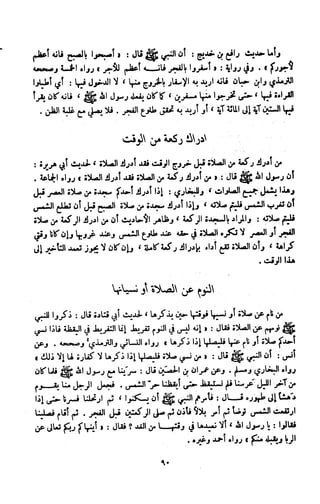 وأما حديث رافع بن خديج : أن النبي ﷺ قال : « أصبحوا بالصبح فانه أعظم
لأجوركم » . وفي رواية : « أسفروا بالفجر فانـــه أعظم للأجر » رواه الخمسة وصححه
الترمذي وابن حبان فانه اريد به الإسفار بالخروج منها ، لا الدخول فيها : أي أطيلوا
القراءة فيها ، حتى تخرجوا منها مسفرين ، كما كان يفعله رسول الله ﷺ ، فانه كان يقرأ
فيها الستين آية إلى المائة آية ، أو أريد به تحقق طلوع الفجر . فلا يصلي مع غلبة الظن .
ادراك ركعة من الوقت
من أدرك ركعة من الصلاة قبل خروج الوقت فقد أدرك الصلاة ، لحديث أبي هريرة :
أن رسول الله ﷺ قال : « من أدرك ركعة من الصلاة فقد أدرك الصلاة » رواه الجماعة .
وهذا يشمل جميع الصلوات ، وللبخاري : إذا أدرك أحدكم سجدة من صلاة العصر قبل
أن تغرب الشمس فليتم صلاته ، وإذا أدرك سجدة من صلاة الصبح قبل أن تطلع الشمس
فليتم صلاته : والمراد بالسجدة الركعة ، وظاهر الأحاديث أن من ادرك الركعة من صلاة
الفجر أو العصر لا تكره الصلاة في حقه عند طلوع الشمس وعند غروبها وإن كانا وقتي
كراهة ، وأن الصلاة تقع أداء بإدراك ركعة كاملة ، وإن كان لا يجوز تعمد التأخير إلى
هذا الوقت .
النوم عن الصلاة أو نسيانها
من نام عن صلاة أو نسيها فوقتها حين يذكرها ، لحديث أبي قتادة قال : ذكروا للنبي
ﷺ نومهم عن الصلاة فقال : « إنه ليس في النوم تفريط إنما التفريط في اليقظة فاذا نسي
أحدكم صلاة أو نام عنها فليصلها إذا ذكرها » رواه النسائي والترمذي وصححه . وعن
أنس : أن النبي ﷺ قال : « من نسي صلاة فليصلها إذا ذكرها لا كفارة لها إلا ذلك »
رواه البخاري ومسلم . وعن عمران بن الحصين قال : سرينا مع رسول الله ﷺ فلما كان
من آخر الليل عرسنا فلم نستيقظ حتى أيقظنا حرّ الشمس . فجعل الرجل منا يقـــوم
دهشاً إلى طهوره قـــال : فأمرهم النبي ﷺ أن يسكنوا ، ثم ارتحلنا فسرنا حتى إذا
ارتفعت الشمس توضأ ثم أمر بلالاً فأذن ثم صلى الركعتين قبل الفجر . ثم أقام فصلينا
فقالوا : يا رسول الله ، ألا نعيدها في وقتهــا من الغد ؟ فقال : « أينهاكم ربكم تعالى عن
الربا ويقبله منكم » رواه أحمد وغيره .
٩٠